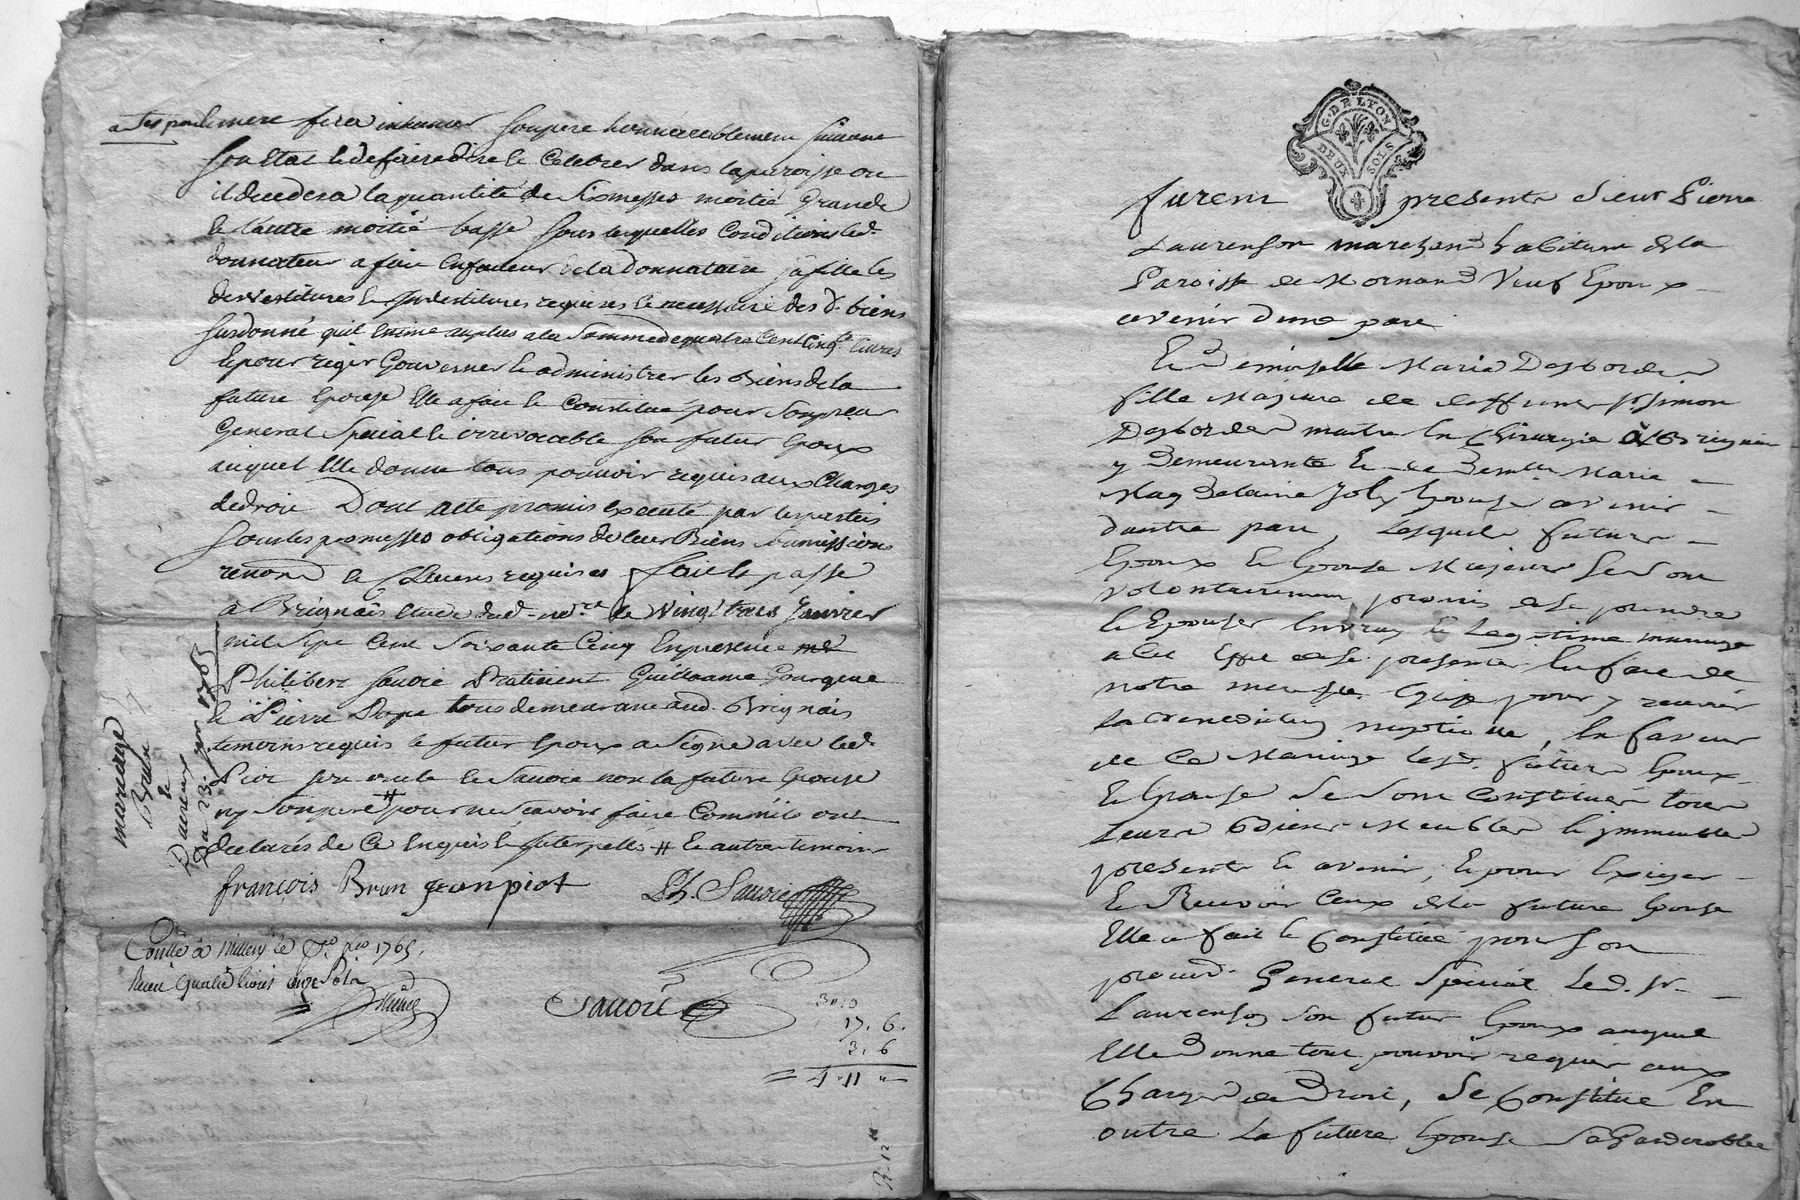 mere fera inhumer son pere honnorablement suivant
son Etat & de faire dire & Celebrer dans la paroisse ou
il decedera la quantité de Six messes moitié Grande
& l'autre moitié basse sous lesquelles Conditions led.
donnateur a fait En faveur de la donnataire sa fille les
devestitures & Investitures requises & necessaire des d. biens
susdonné qu'il Estime a la Somme de quatre Cent Cinq.te livres
& pour regir Gouverner & administrer les Biens de la
future Epouse Elle a fait & Constitué pour son pr.eur
General Special & irrevocable son futur Epoux
auquel Elle donne tous pouvoir requis aux Charges
de droit Dont acte promis Executé par les parties
sous les promesses obligations de leur Biens soumissions
renond. & Clauses requises fait & passé
a Brignais Etude dud. no.re le vingt trois Janvier
mil Sept Cent Soixante Cinq En presence
Philibert Savoie Praticient Guillaume Gourgene
& Pierre Pope tous demeurant aud. Brignais
temoins requis le futur Epoux a Signé avec led.
Piot & Savoie non la future Epouse
ny son pere # pour ne Scavoir faire Comm'ils ont
declarés de Ce Enquis & Interpellés # & autre temoin
mariage
Brun
&
Du 23 janvier 1765
françois Brun jean piot Ph. Savoie
Conllé à Millery le 1765.
Reçu quatre livres onze Sols
Savoie
3 " 0
17 . 6 .
3 . 6
= 4 " 11 "
R. 12 "
G. DE LYON
DEUX SOLS
furent presents Sieur Pierre
Laurenson marchand habitant de la
Paroisse de Mornand Veuf Epoux
avenir d'une part
Et Demoiselle Marie Desborde
fille Majeure de deffunt Sr. Simon
Desborde maitre En Chirurgie à Brignais
y Demeurante Et de Demlle Marie
Magdelaine Joly Epouse avenir
d'autre part, Lesquels futurs
Epoux & Epouse Majeurs se sont
volontairement promis de se prendre
& Epouser En vray & Legitime mariage
a Cet Effet de se presenter En face de
notre mere Ste Eglise pour y recevoir
la Benediction nuptiale, En faveur
de Ce Mariage lesd. futurs Epoux
& Epouse Se Sont Constitués tous
Leurs Biens Meubles & immeubles
presents & avenir, & pour Exiger
& Recevoir Ceux de la future Epouse
Elle a fait & Constitué pour son
General Special Led. Sr.
Laurenson son futur Epoux auquel
Elle Donne tout pouvoir requis aux
Charges de Droit, Se Constitue En
outre La future Epouse Sa Garderobbe